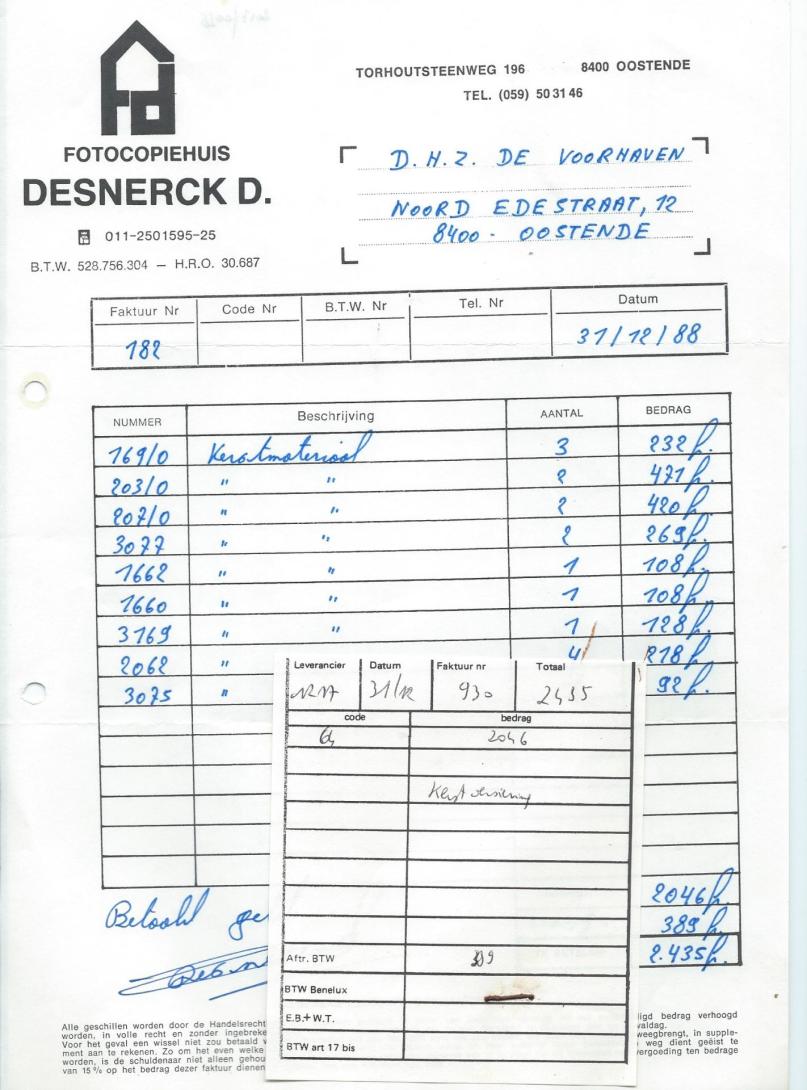 TORHOUTSTEENWEG 196 8400 OOSTENDE
TEL. (059) 50 31 46
FOTOCOPIEHUIS
DESNERCK D.
011-2501595-25
B.T.W. 528.756.304 — H.R.O. 30.687
D.H.Z. DE VOORHAVEN
NOORD EDESTRAAT, 12
8400 - OOSTENDE
Faktuur Nr Code Nr B.T.W. Nr Tel. Nr Datum
182 31/12/88
NUMMER Beschrijving AANTAL BEDRAG
169/0 Kerstmateriaal 3 232 f.
203/0 " " 2 471 f.
207/0 " " 2 420 f.
3077 " " 2 269 f.
1662 " " 1 108 f.
1660 " " 1 108 f.
3169 " " 1 128 f.
2062 " 4 218 f.
3075 " 92 f.
Leverancier Datum Faktuur nr Totaal
31/12 930 2435
code bedrag
64 2046
Kerstversiering
2046 f.
Betaald ge
389 f.
2.435 f.
Aftr. BTW 389
BTW Benelux
E.B.+W.T.
BTW art 17 bis
Alle geschillen worden door de Handelsrecht
worden, in volle recht en zonder ingebreke
Voor het geval een wissel niet zou betaald v
ment aan te rekenen. Zo om het even welke
worden, is de schuldenaar niet alleen gehou
van 15% op het bedrag dezer faktuur dienen
ligd bedrag verhoogd
valdag.
weegbrengt, in supple-
weg dient geëist te
vergoeding ten bedrage